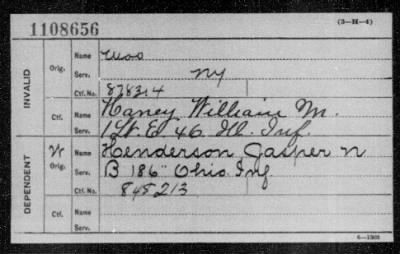 (3-M-4)
1108656
INVALID
Orig.
Name
Serv. NY
Ctf. No. 878314
Ctf.
Name Haney William M.
Serv. 1 Lt. E. 46. Ill. Inf.
DEPENDENT
W
Orig.
Name Henderson Jasper N
Serv. B 186" Ohio. Inf
Ctf. No. 845213
Ctf.
Name
Serv.